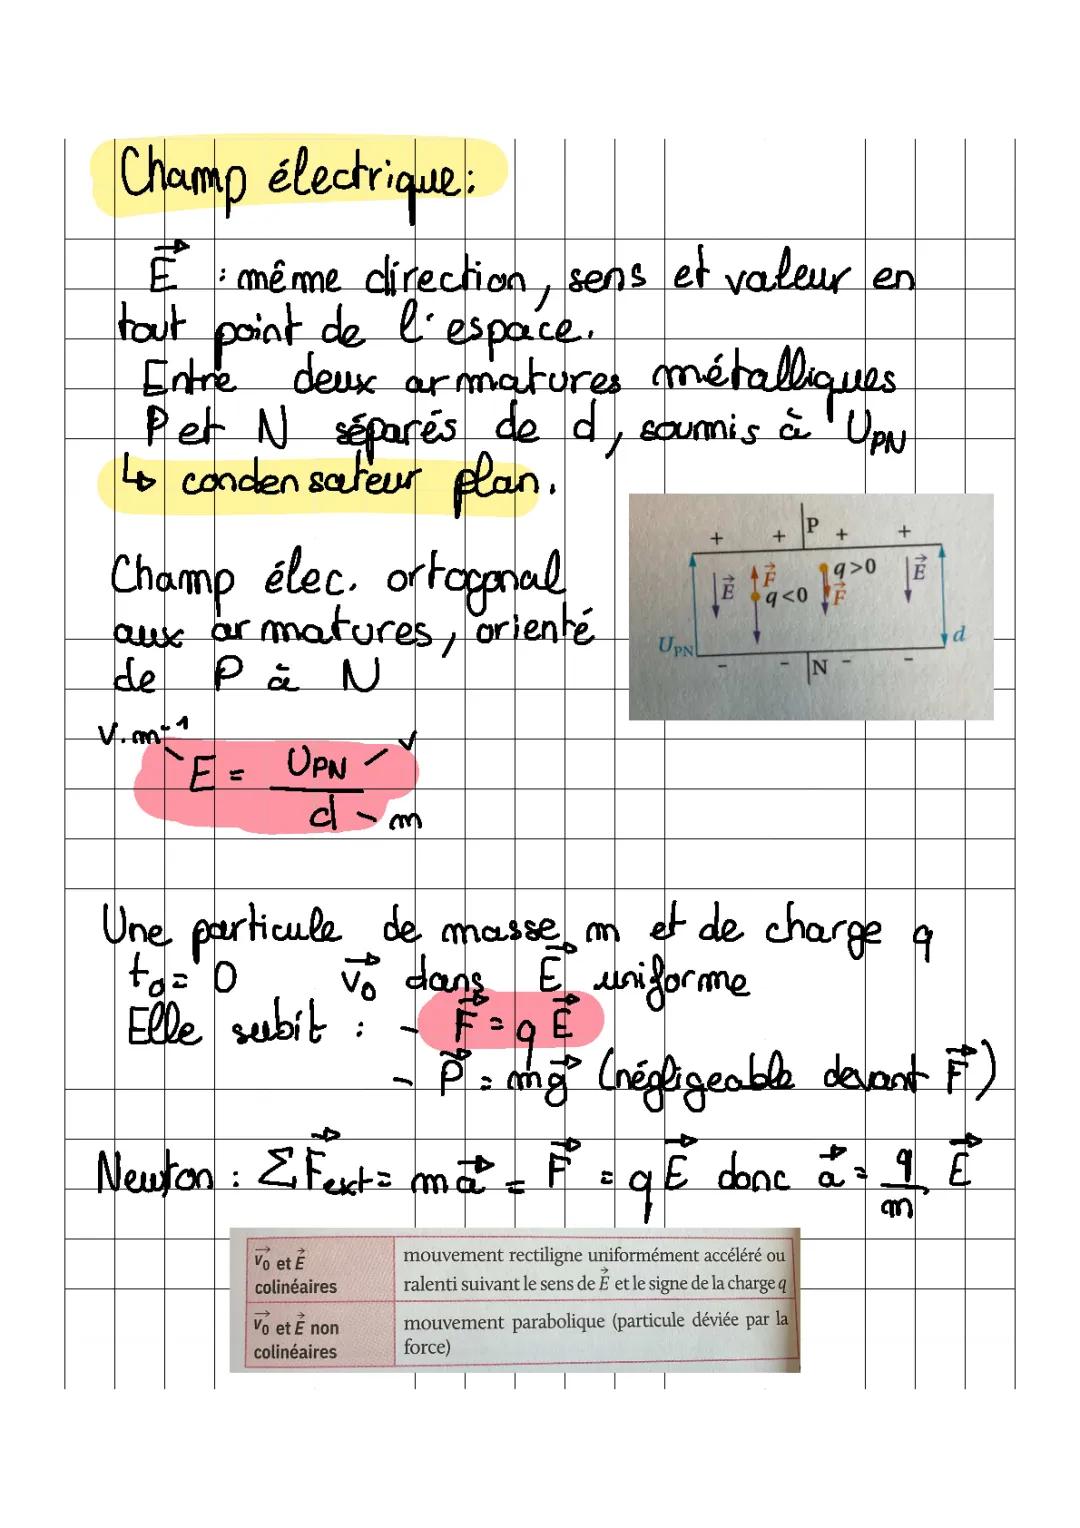 Champ électrique:
E⃗ : même direction, sens et valeur en
tout point de l'espace.
Entre deux armatures métalliques
P et N séparés de d, soumis à U_PN
↳ condensateur plan.
+ + P + +
E⃗ F⃗ q<0 q>0 F⃗ E⃗
U_PN d
- - N - -
Champ élec. orthogonal
aux armatures, orienté
de P à N
V.m⁻¹ E = U_PN / d V m
Une particule de masse m et de charge q
t₀ = 0 v₀⃗ dans E⃗ uniforme
Elle subit : - F⃗ = q E⃗
- P⃗ = mg⃗ (négligeable devant F⃗)
Newton : ΣF⃗ext = m a⃗ = F⃗ = q E⃗ donc a⃗ = q/m E⃗
v₀⃗ et E⃗ colinéaires
mouvement rectiligne uniformément accéléré ou
ralenti suivant le sens de E⃗ et le signe de la charge q
v₀⃗ et E⃗ non colinéaires
mouvement parabolique (particule déviée par la
force)